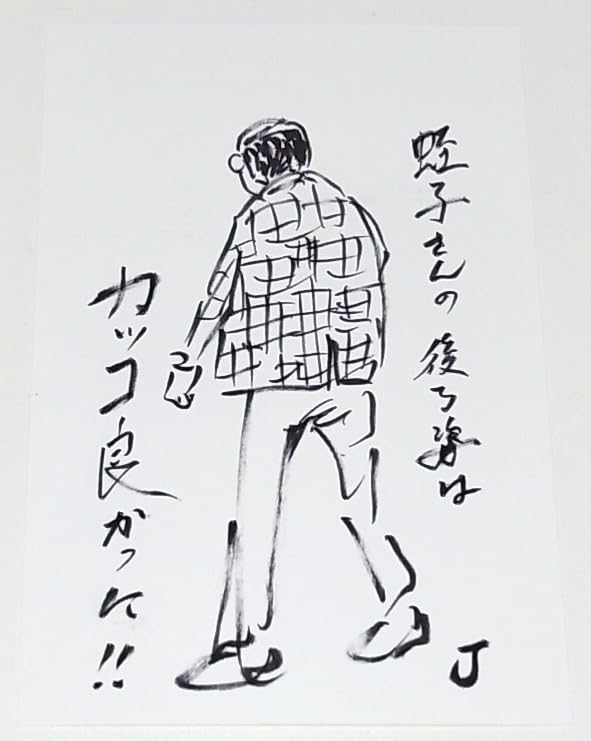 蛭子さんの後ろ姿は
カッコ良かった!!
J